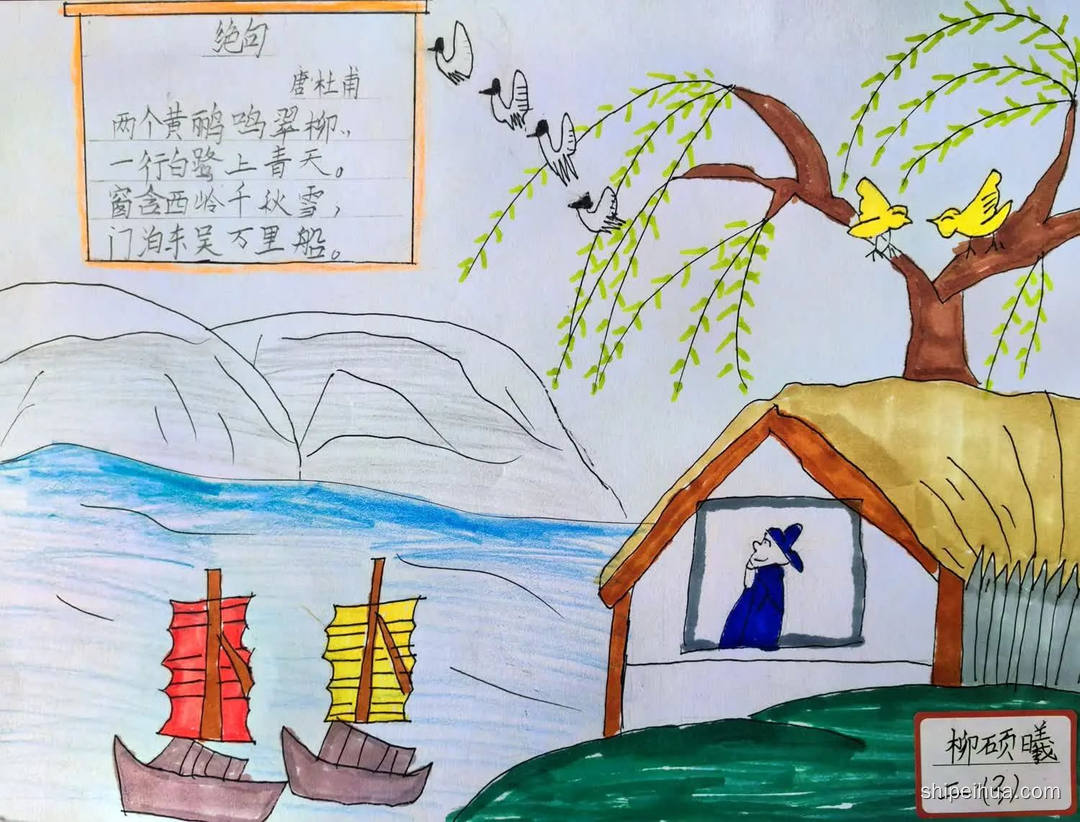 绝句
唐·杜甫
两个黄鹂鸣翠柳，
一行白鹭上青天。
窗含西岭千秋雪，
门泊东吴万里船。
柳硕曦
shipeihua.com